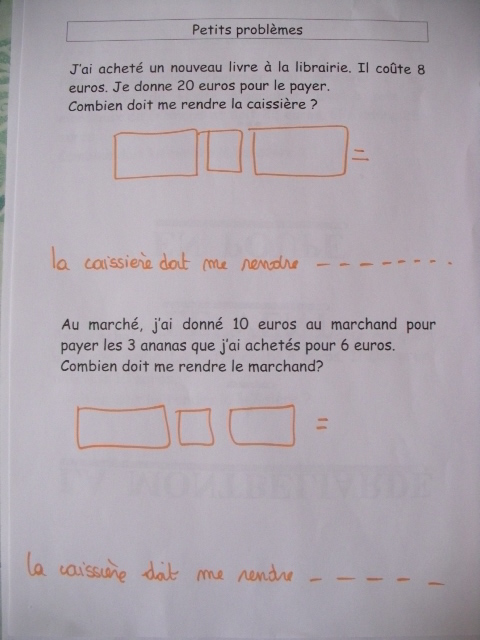 Petits problèmes
J'ai acheté un nouveau livre à la librairie. Il coûte 8
euros. Je donne 20 euros pour le payer.
Combien doit me rendre la caissière ?
=
la caissière doit me rendre _ _ _ _ _ _ _ .
Au marché, j'ai donné 10 euros au marchand pour
payer les 3 ananas que j'ai achetés pour 6 euros.
Combien doit me rendre le marchand?
=
la caissière doit me rendre _ _ _ _ _